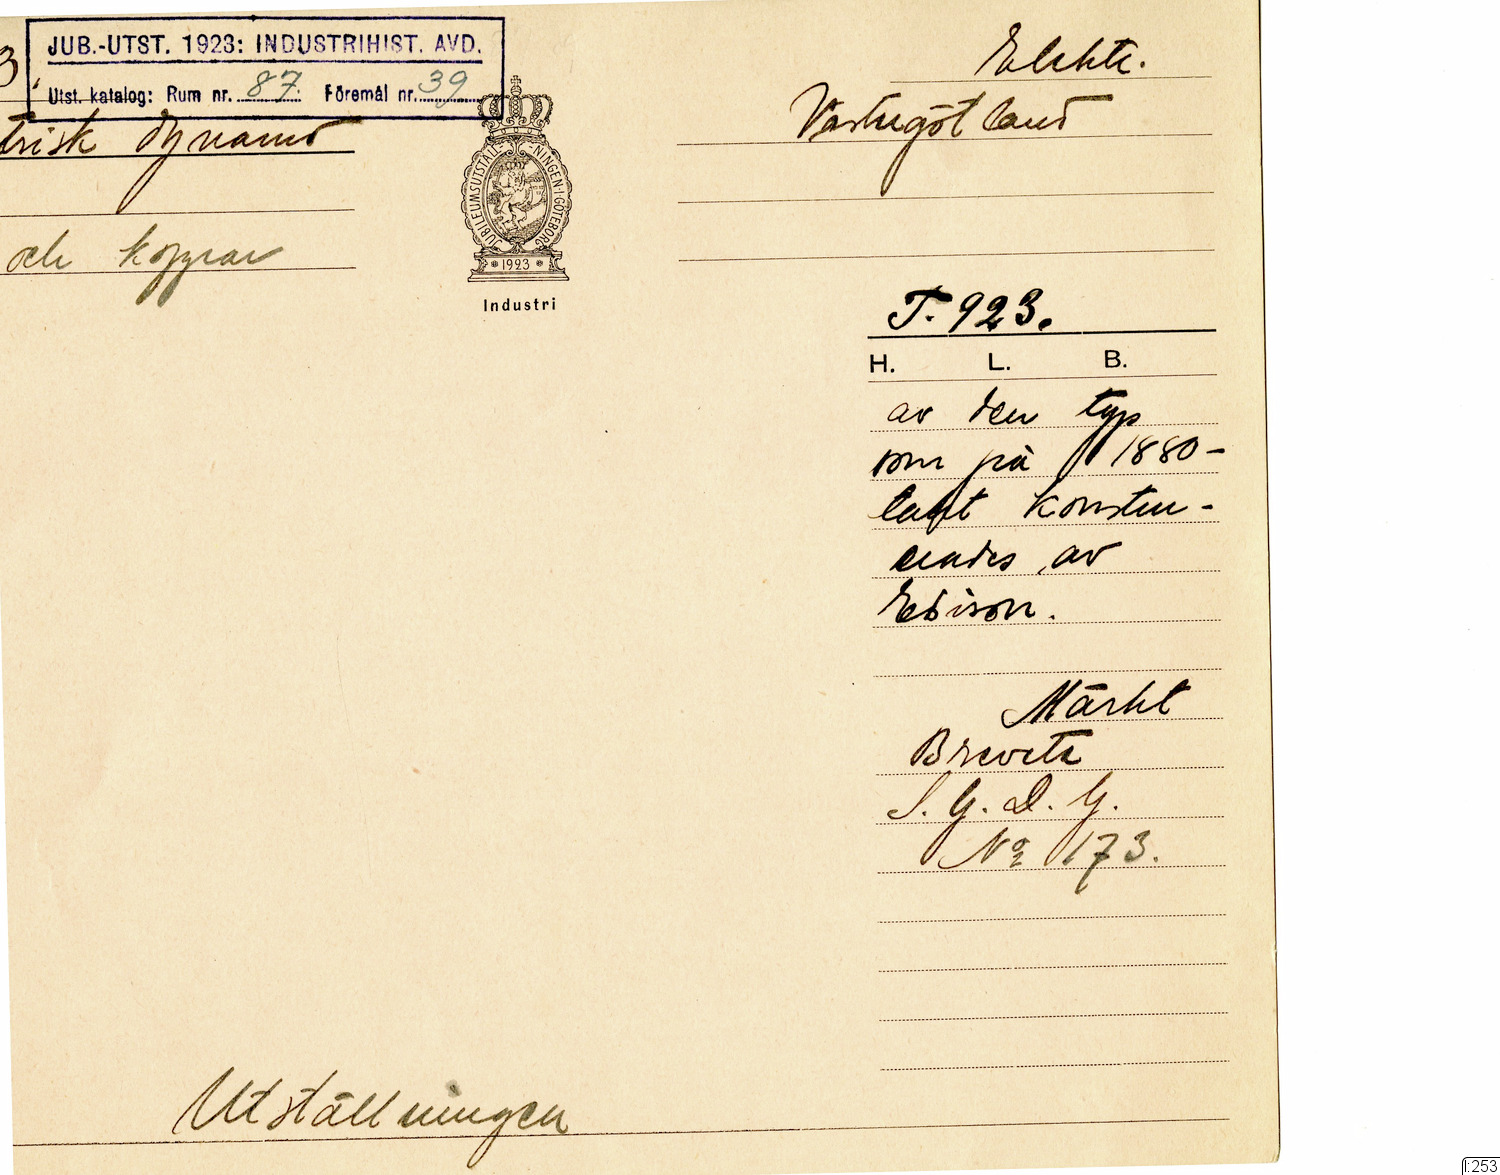 3
JUB.-UTST. 1923: INDUSTRIHIST. AVD.
Utst. katalog: Rum nr. 87. Föremål nr. 39
Elektr.
Västergötland
trisk dynamo
och koppar
JUBILEUMSUTSTÄLL-NINGEN·I·GÖTEBORG
1923
Industri
T. 923.
H. L. B.
av den typ
som på 1880-
talet konstru-
erades av
Edison.
Märkt
Brevete
S. G. D. G.
No 173.
Utställningen
I:253